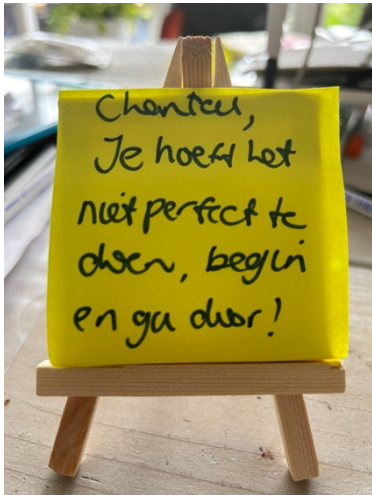 Chantal,
Je hoeft het
niet perfect te
doen, begin
en ga door!